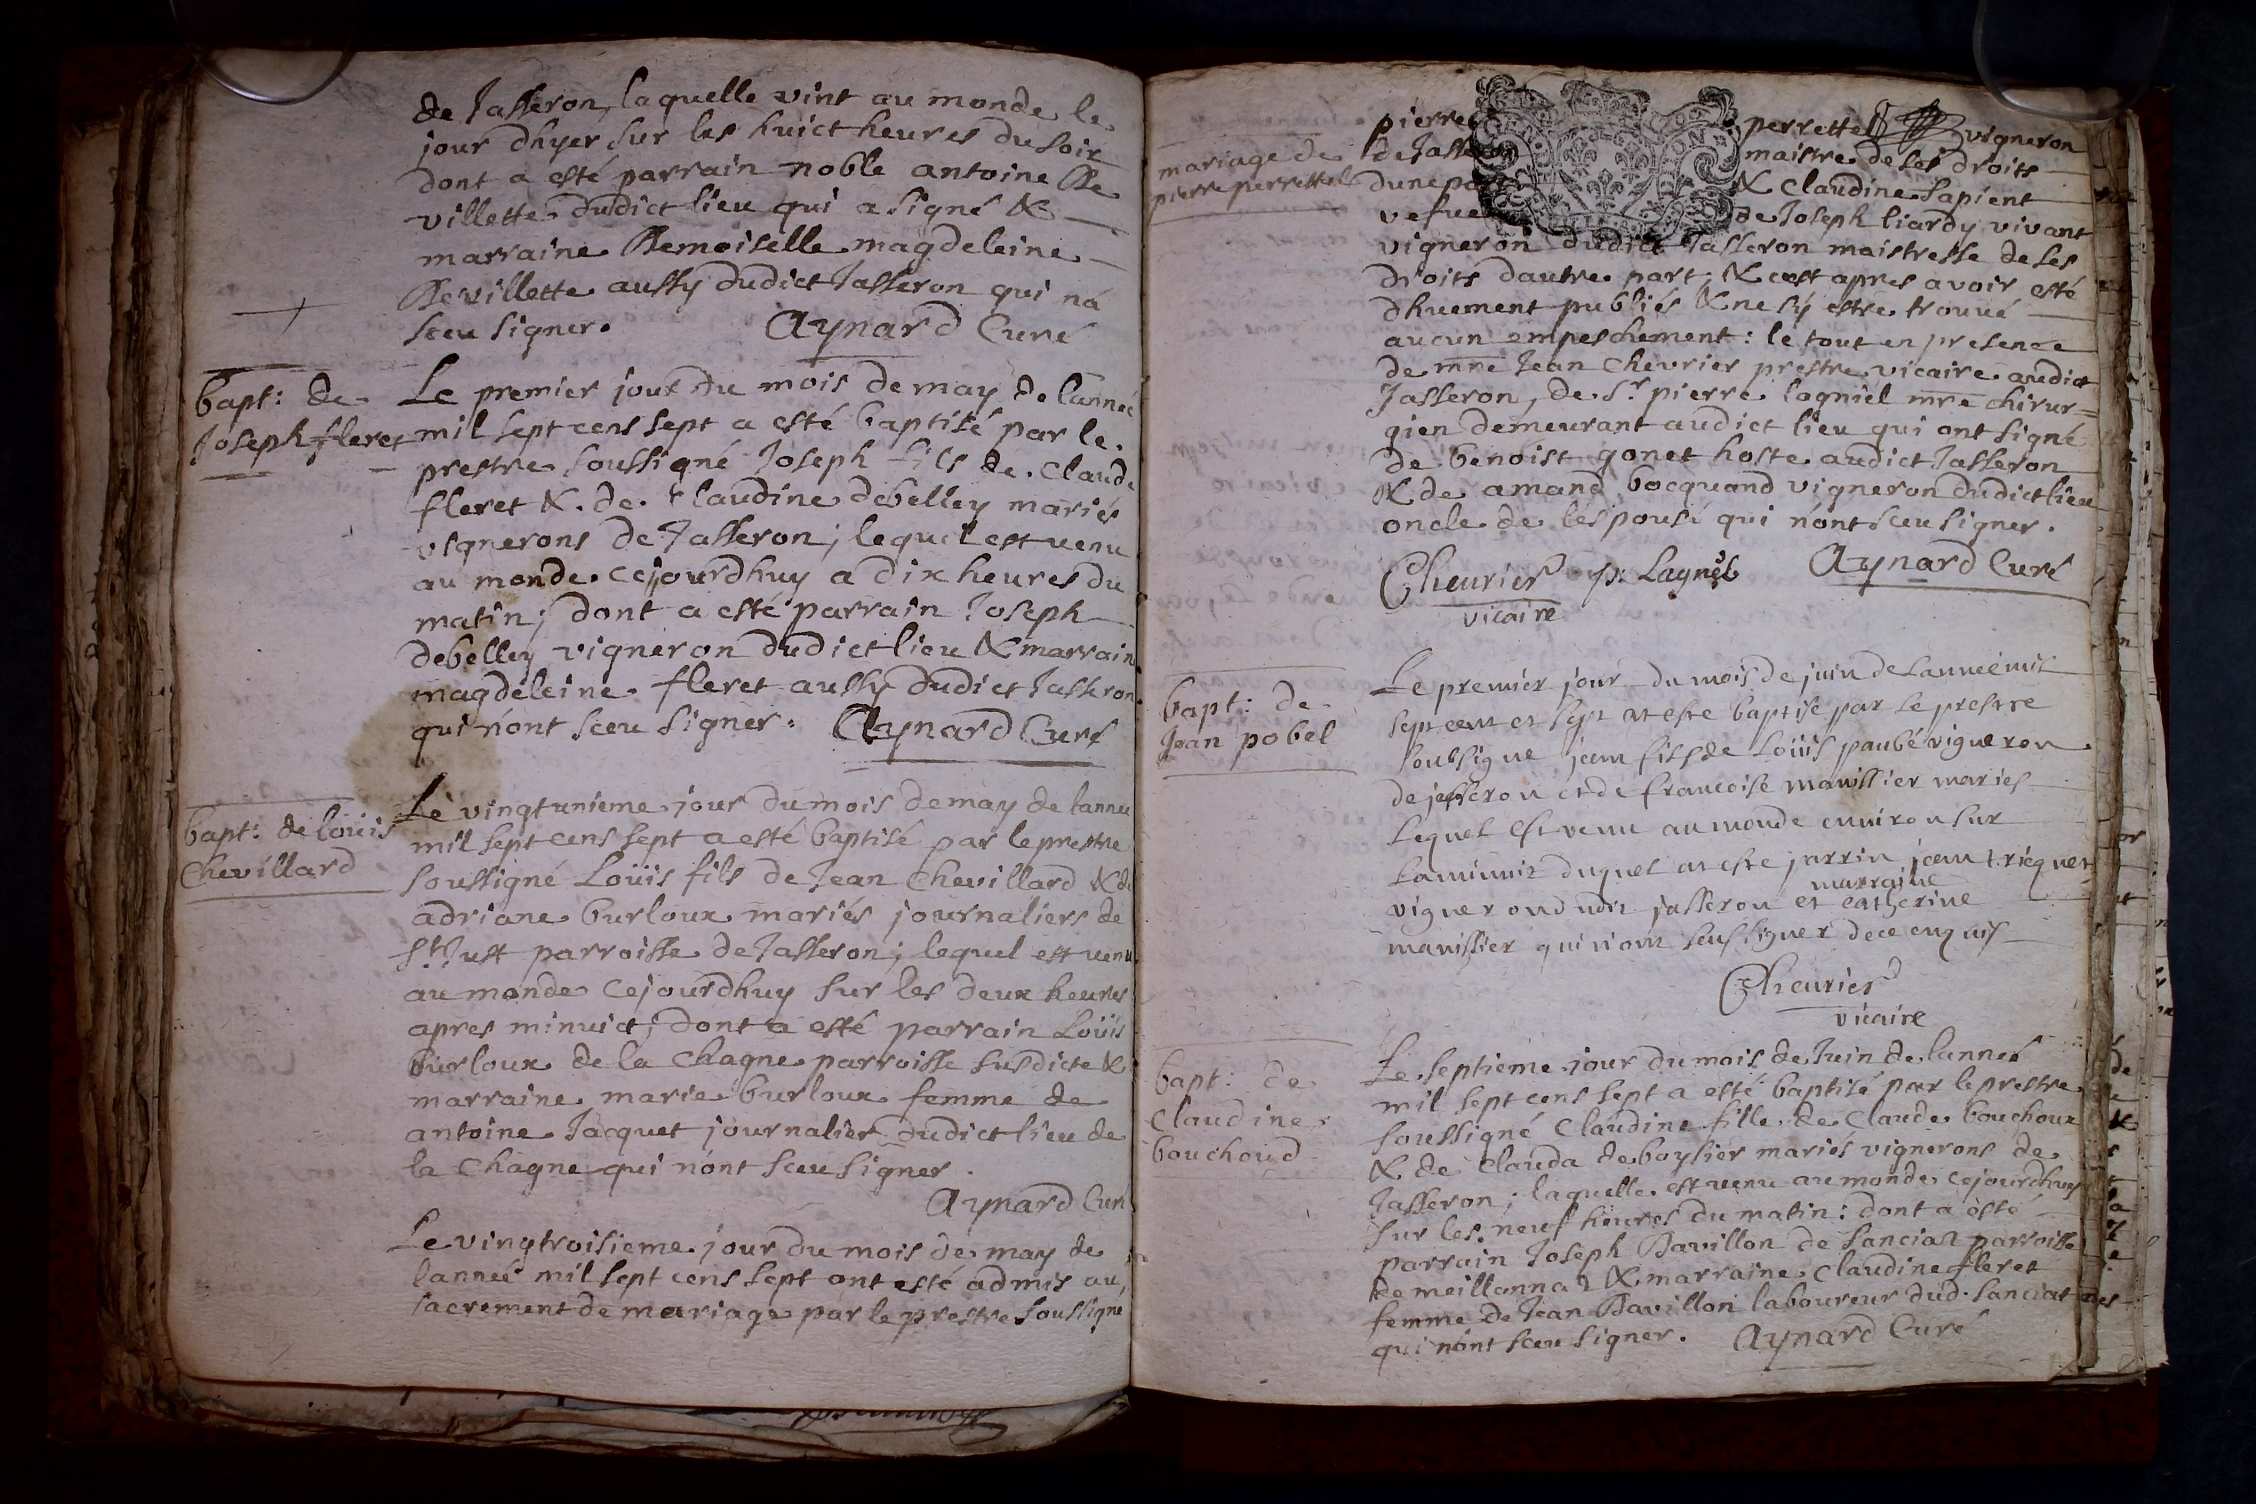 de Jasseron, laquelle vint au monde le
jour dhyer sur les huict heures du soir
dont a esté parrain noble antoine De
villette dudict lieu qui a signé &
marraine Demoiselle magdeleine
Devillette aussy dudict Jasseron qui na
sceu signer. Aynard Curé
bapt: de
Joseph fleret
Le premier jour du mois de may de lanneé
mil sept cens sept a esté baptisé par le
prestre soussigné Joseph fils de Claude
fleret & de Claudine debelley mariés
vignerons de Jasseron; lequel est venu
au monde cejourdhuy a dix heures du
matin; dont a esté parrain Joseph
debelley vigneron dudict lieu & marrain
magdeleine fleret aussy dudict Jasseron
qui nont sceu signer. Aynard Curé
bapt: de loüis
Chevillard
Le vingtunieme jour du mois de may de lannee
mil sept cens sept a esté baptisé par le prestre
soussigné Loüis fils de Jean Chevillard & de
adriane burloux mariés journaliers de
St Just parroisse de Jasseron; lequel est venu
au monde cejourdhuy sur les deux heures
apres minuict; dont a esté parrain Loüis
burloux de la Chagne parroisse susdicte &
marraine marie burloux femme de
antoine Jacquet journalier dudict lieu de
la Chagne qui nont sceu signer.
Aynard Curé
Le vingtroisieme jour du mois de may de
lanneé mil sept cens sept ont esté admis au
sacrement de mariage par le prestre soussigné
mariage de
pierre perrettet
pierre perrettet vigneron
de Jasseron maistre de ses droits
dune part & Claudine Sapient
vefue de Joseph liardy vivant
vigneron dudict Jasseron maistresse de ses
droits dautre part; & cest apres avoir esté
dhuement publiés & ne sÿ estre trouué
aucun empeschement: le tout en presence
de mre Jean Chevrier prestre vicaire audict
Jasseron, de Sr pierre lagniel mre chirur=
gien demeurant audict lieu qui ont signé
de benoist gonet hoste audict Jasseron
& de amand bocquand vigneron dudict lieu
oncle de lespousé qui nont sceu signer.
Cheurier p: Lagniel Aynard Curé
vicaire
bapt: de
Jean pobel
Le premier jour du mois de juin de lanneé mil
sept cent et sept at este baptise par le prestre
soubsigne jean fils de Loüis paubé vigneron
de jasseron et de francoise manissier maries
Lequel est venu au monde enuiron sur
Laminuit duquel at este parrin jean tricquet
marraine
vigneron dudit jasseron et catherine
manissier qui n'ont seu signer de ce enquis
Cheurier
vicaire
bapt: de
Claudine
bouchoud
Le septieme jour du mois de Juin de lanneé
mil sept cens sept a esté baptisé par le prestre
soussigné Claudine fille de Claude bouchoux
& de Clauda deboysier mariés vignerons de
Jasseron; laquelle est venu au monde cejourdhuy
sur les neuf heures du matin: dont a esté
parrain Joseph Davillon de Sanciat parroisse
de meillonna & marraine Claudine fleret
femme de Jean Davillon laboureur dud. Sanciat
qui nont sceu signer. Aynard Curé